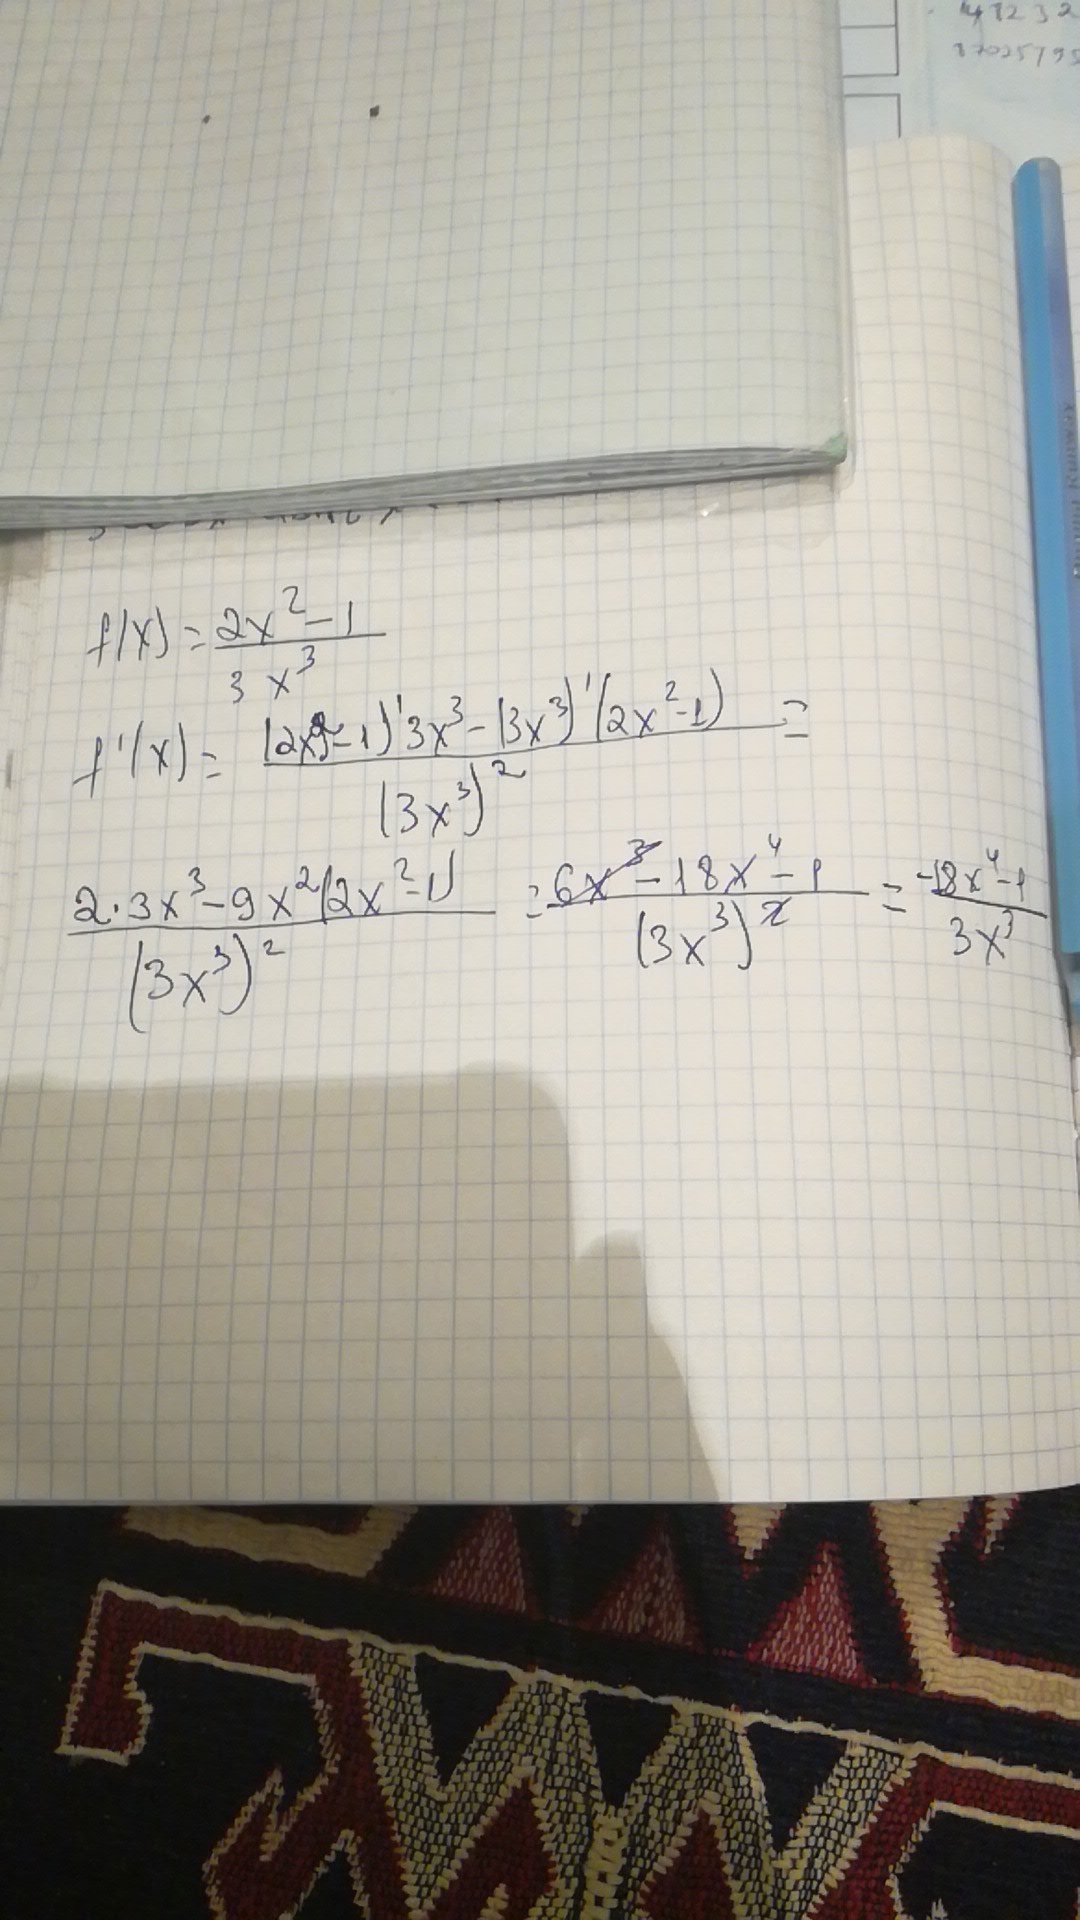 41232
f(x) = \frac{2x^2-1}{3x^3}
f'(x) = \frac{(2x^2-1)'3x^3-(3x^3)'(2x^2-1)}{(3x^3)^2} =
\frac{2·3x^3-9x^2(2x^2-1)}{(3x^3)^2} = \frac{6x^3-18x^4-1}{(3x^3)^2} = \frac{-18x^4-1}{3x^3}